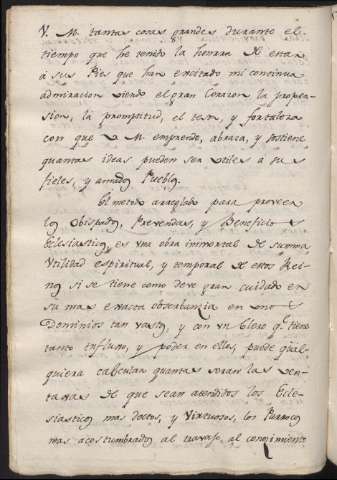 V. M. tantas cosas grandes durante el
tiempo que he tenido la honra de estar
á sus Pies que han excitado mi continua
admiracion viendo el gran Corazon la propen-
sion, la promptitud, el teson, y fortaleza
con que V. M. emprende, abraza, y sostiene
quantas ideas pueden ser utiles á sus
fieles, y amados Pueblos.
El metodo arreglado para proveer
los Obispados, Prevendas, y Beneficios
Eclesiasticos, es una obra inmortal de summa
Utilidad espiritual, y temporal de estos Rei-
nos si se tiene como deve gran cuidado en
su mas exacta observancia en unos
Dominios tan vastos, y con un Clero qe. tiene
tanto influxo, y poder en ellos, puede qual-
quiera calcular quantas seran las ven-
tajas de que sean atendidos los Ecle-
siasticos mas doctos, y Virtuosos, los Parrocos
mas acostumbrados al travajo, al conocimiento